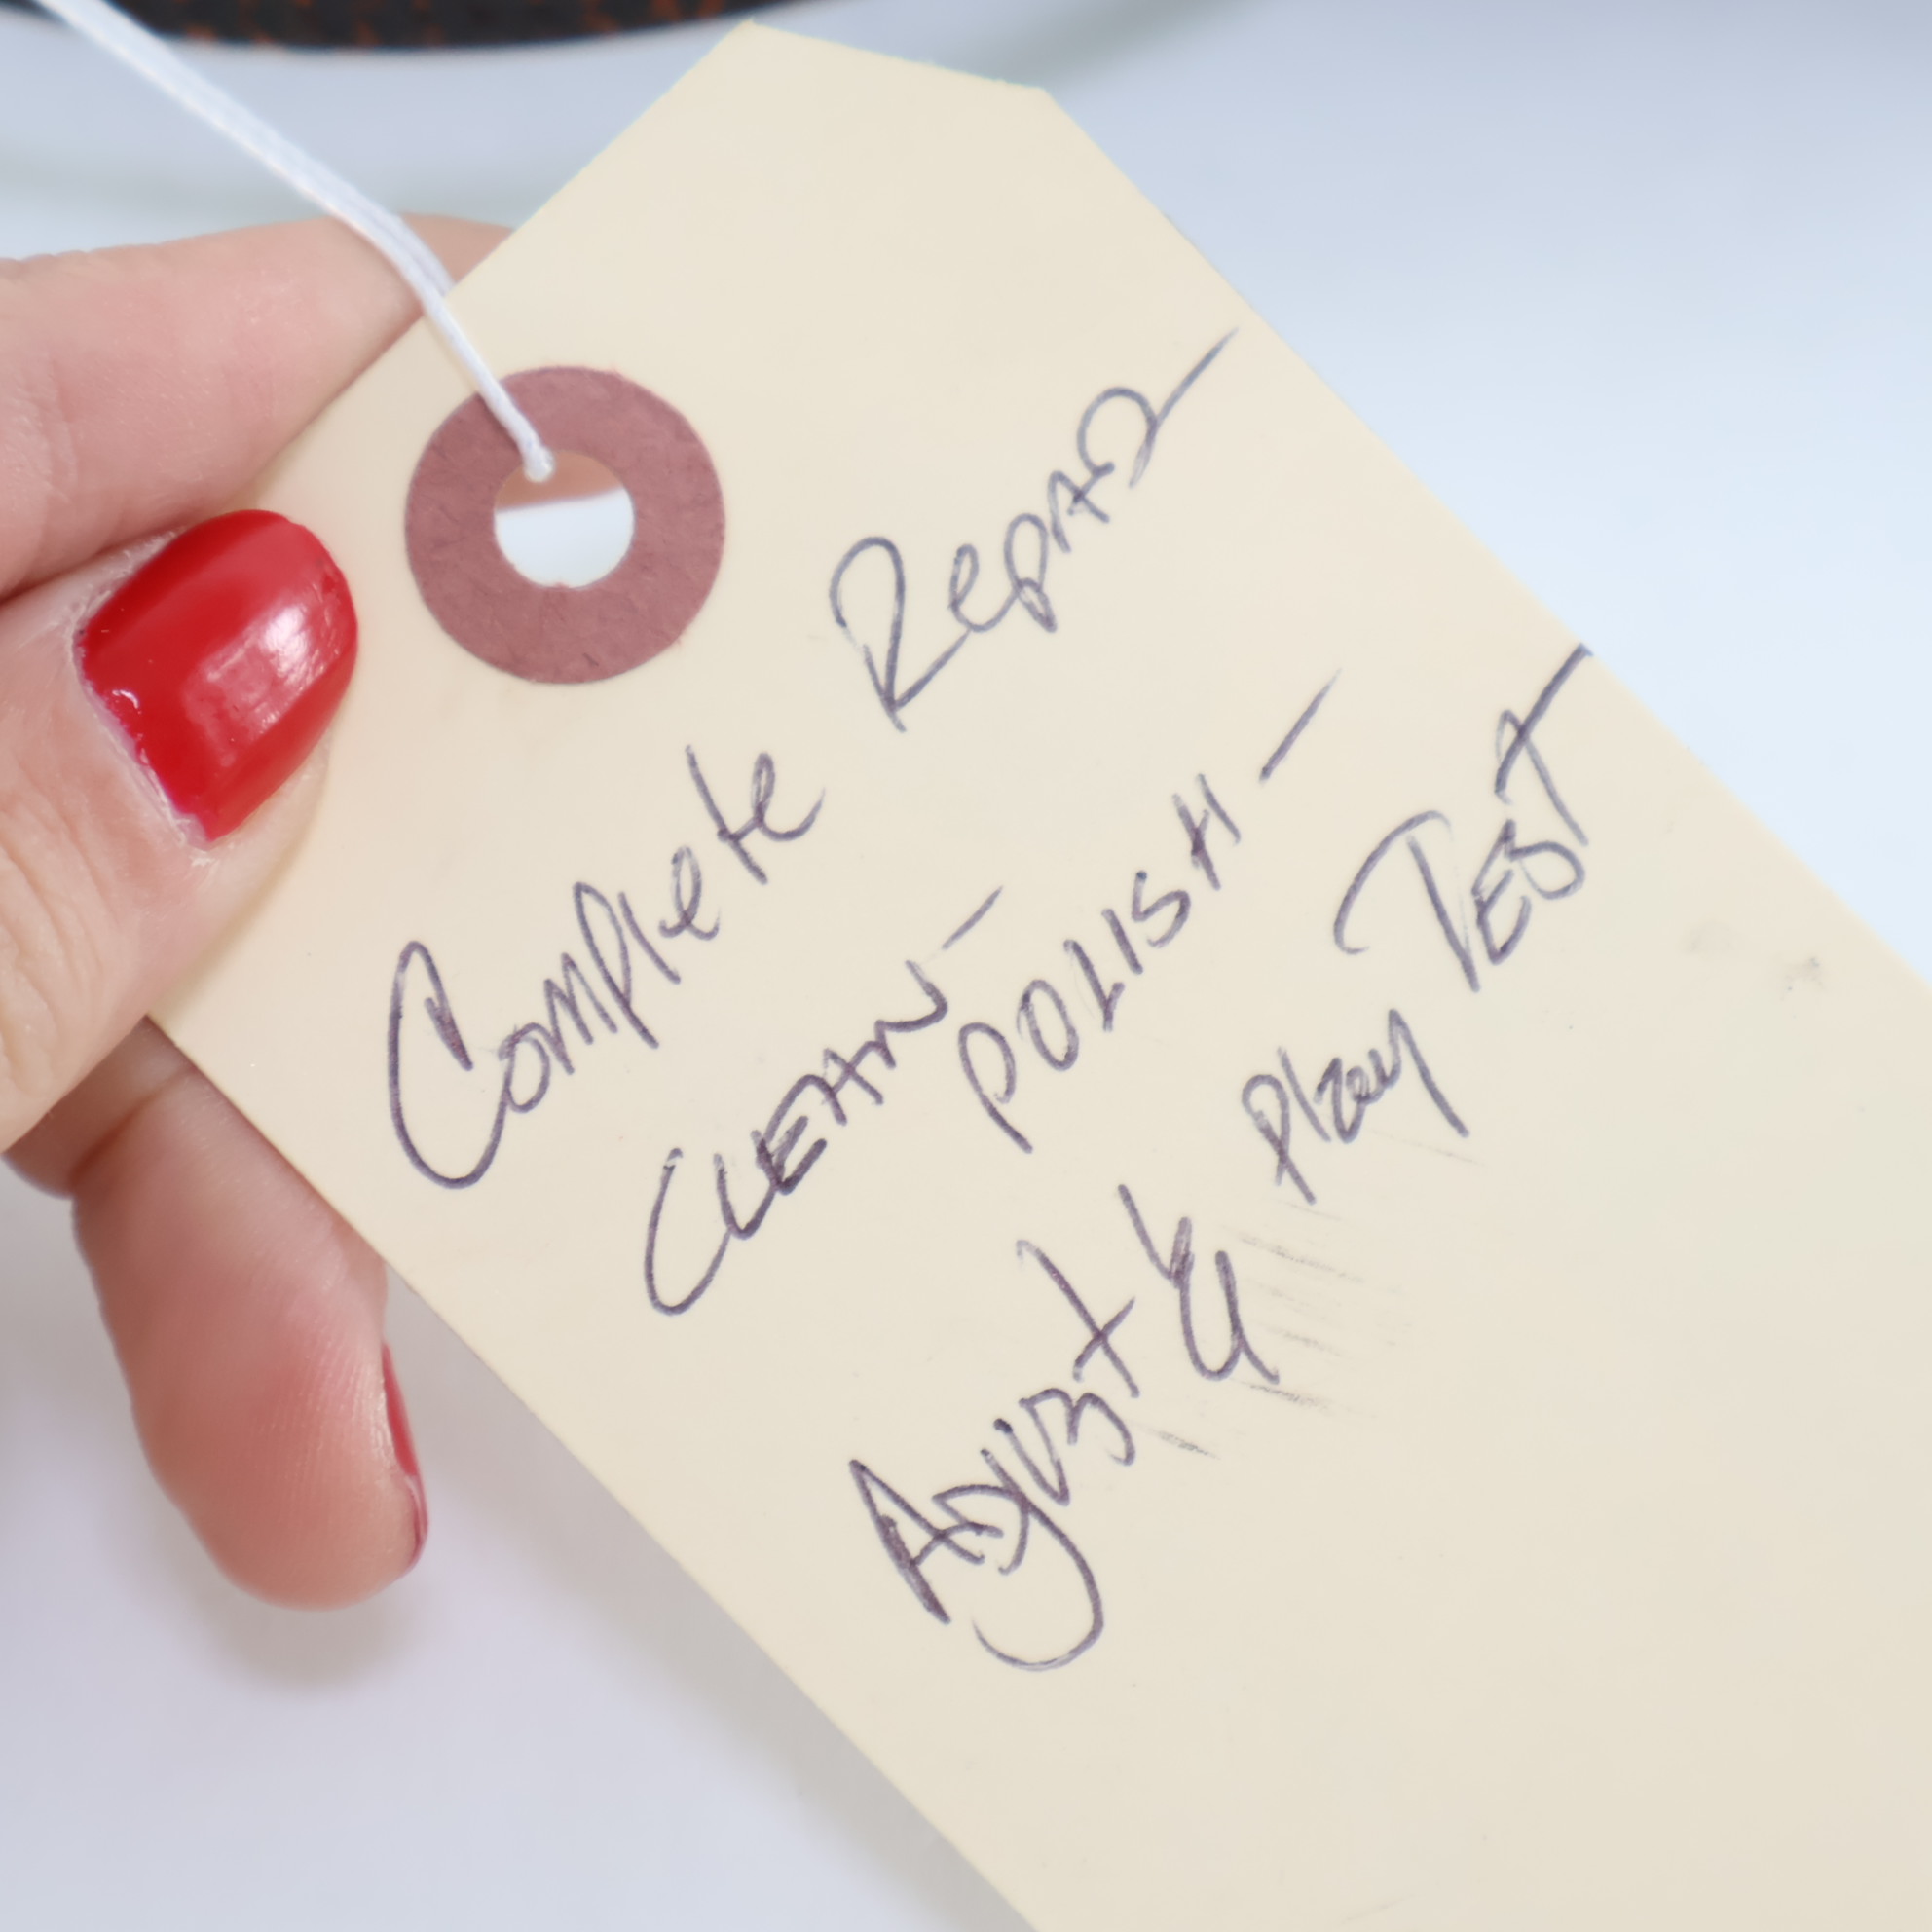 Complete Repair
CLEAN - POLISH -
Adjust & Play TEST